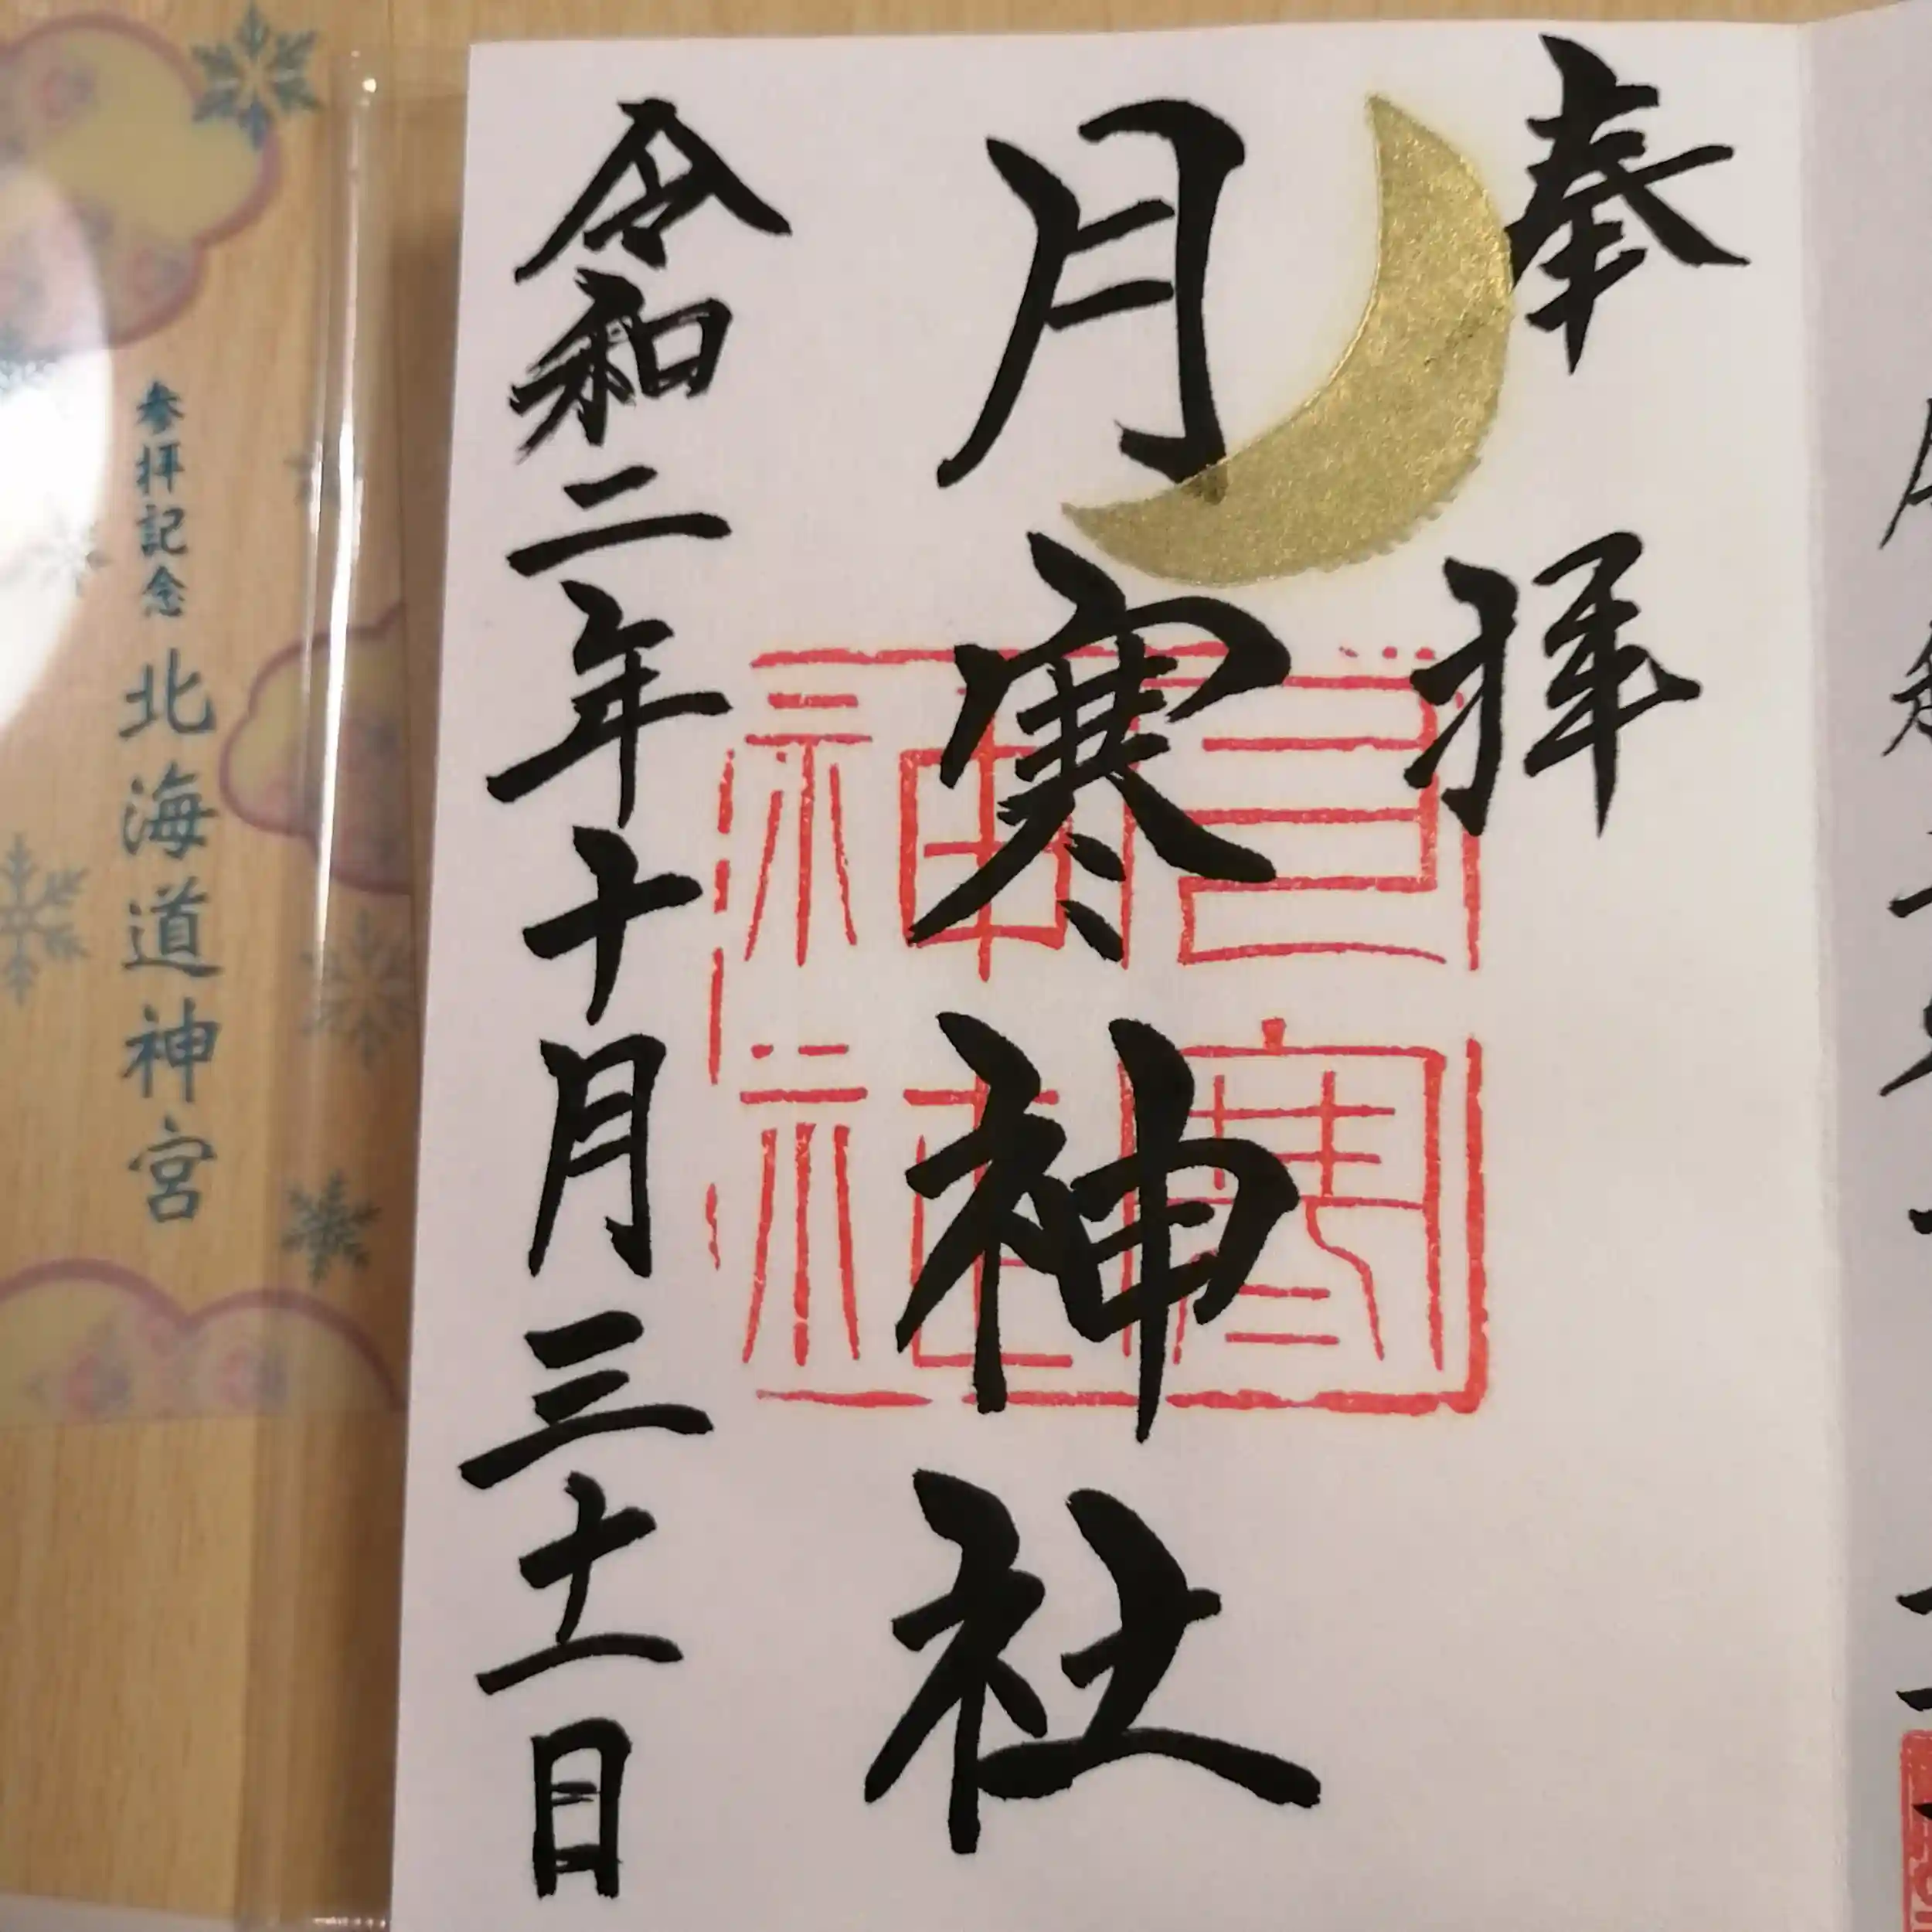 奉拝
月寒神社
月寒神社
令和二年十月三十一日
参拝記念 北海道神宮